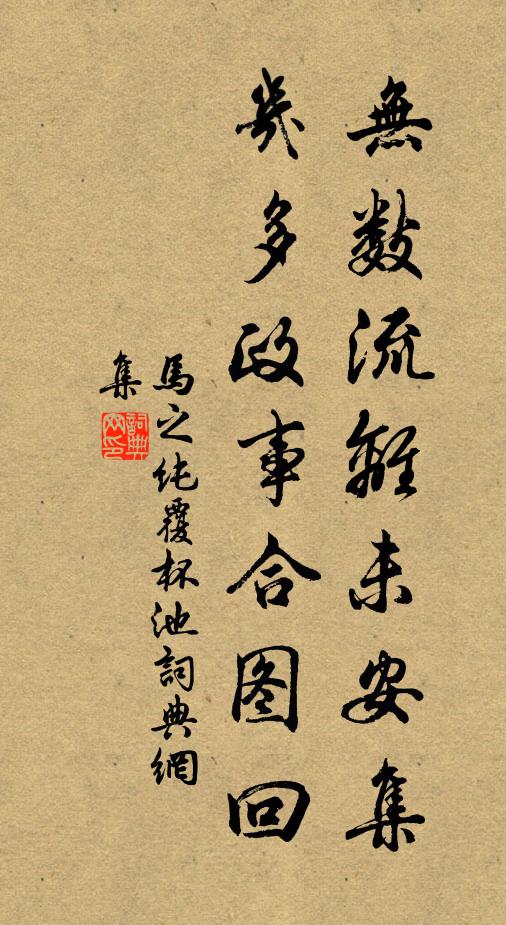 無數流離未安集
幾多政事合图回
馬之純覆杯池詞典網
集
詞典網印